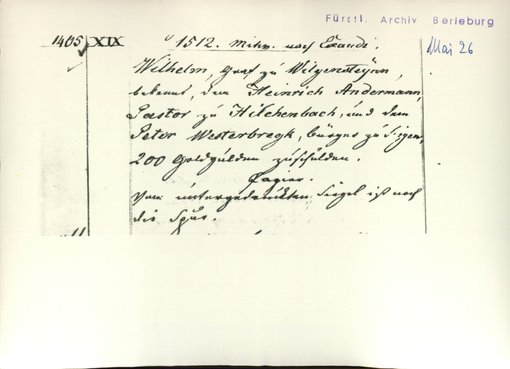 Fürstl. Archiv Berleburg
1405 XIX 1512. Mitw. nach Exaudi.
Mai 26
Wilhelm, Graf zu Witgensteynn,
bekennt, dem Heinrich Andermann,
Pastor zu Hilchenbach, und dem
Peter Westerbregk, bürger zu Sigen,
200 Goldgulden zu schulden.
Papier.
Vom untergedruckten Siegel ist noch
die Spur.